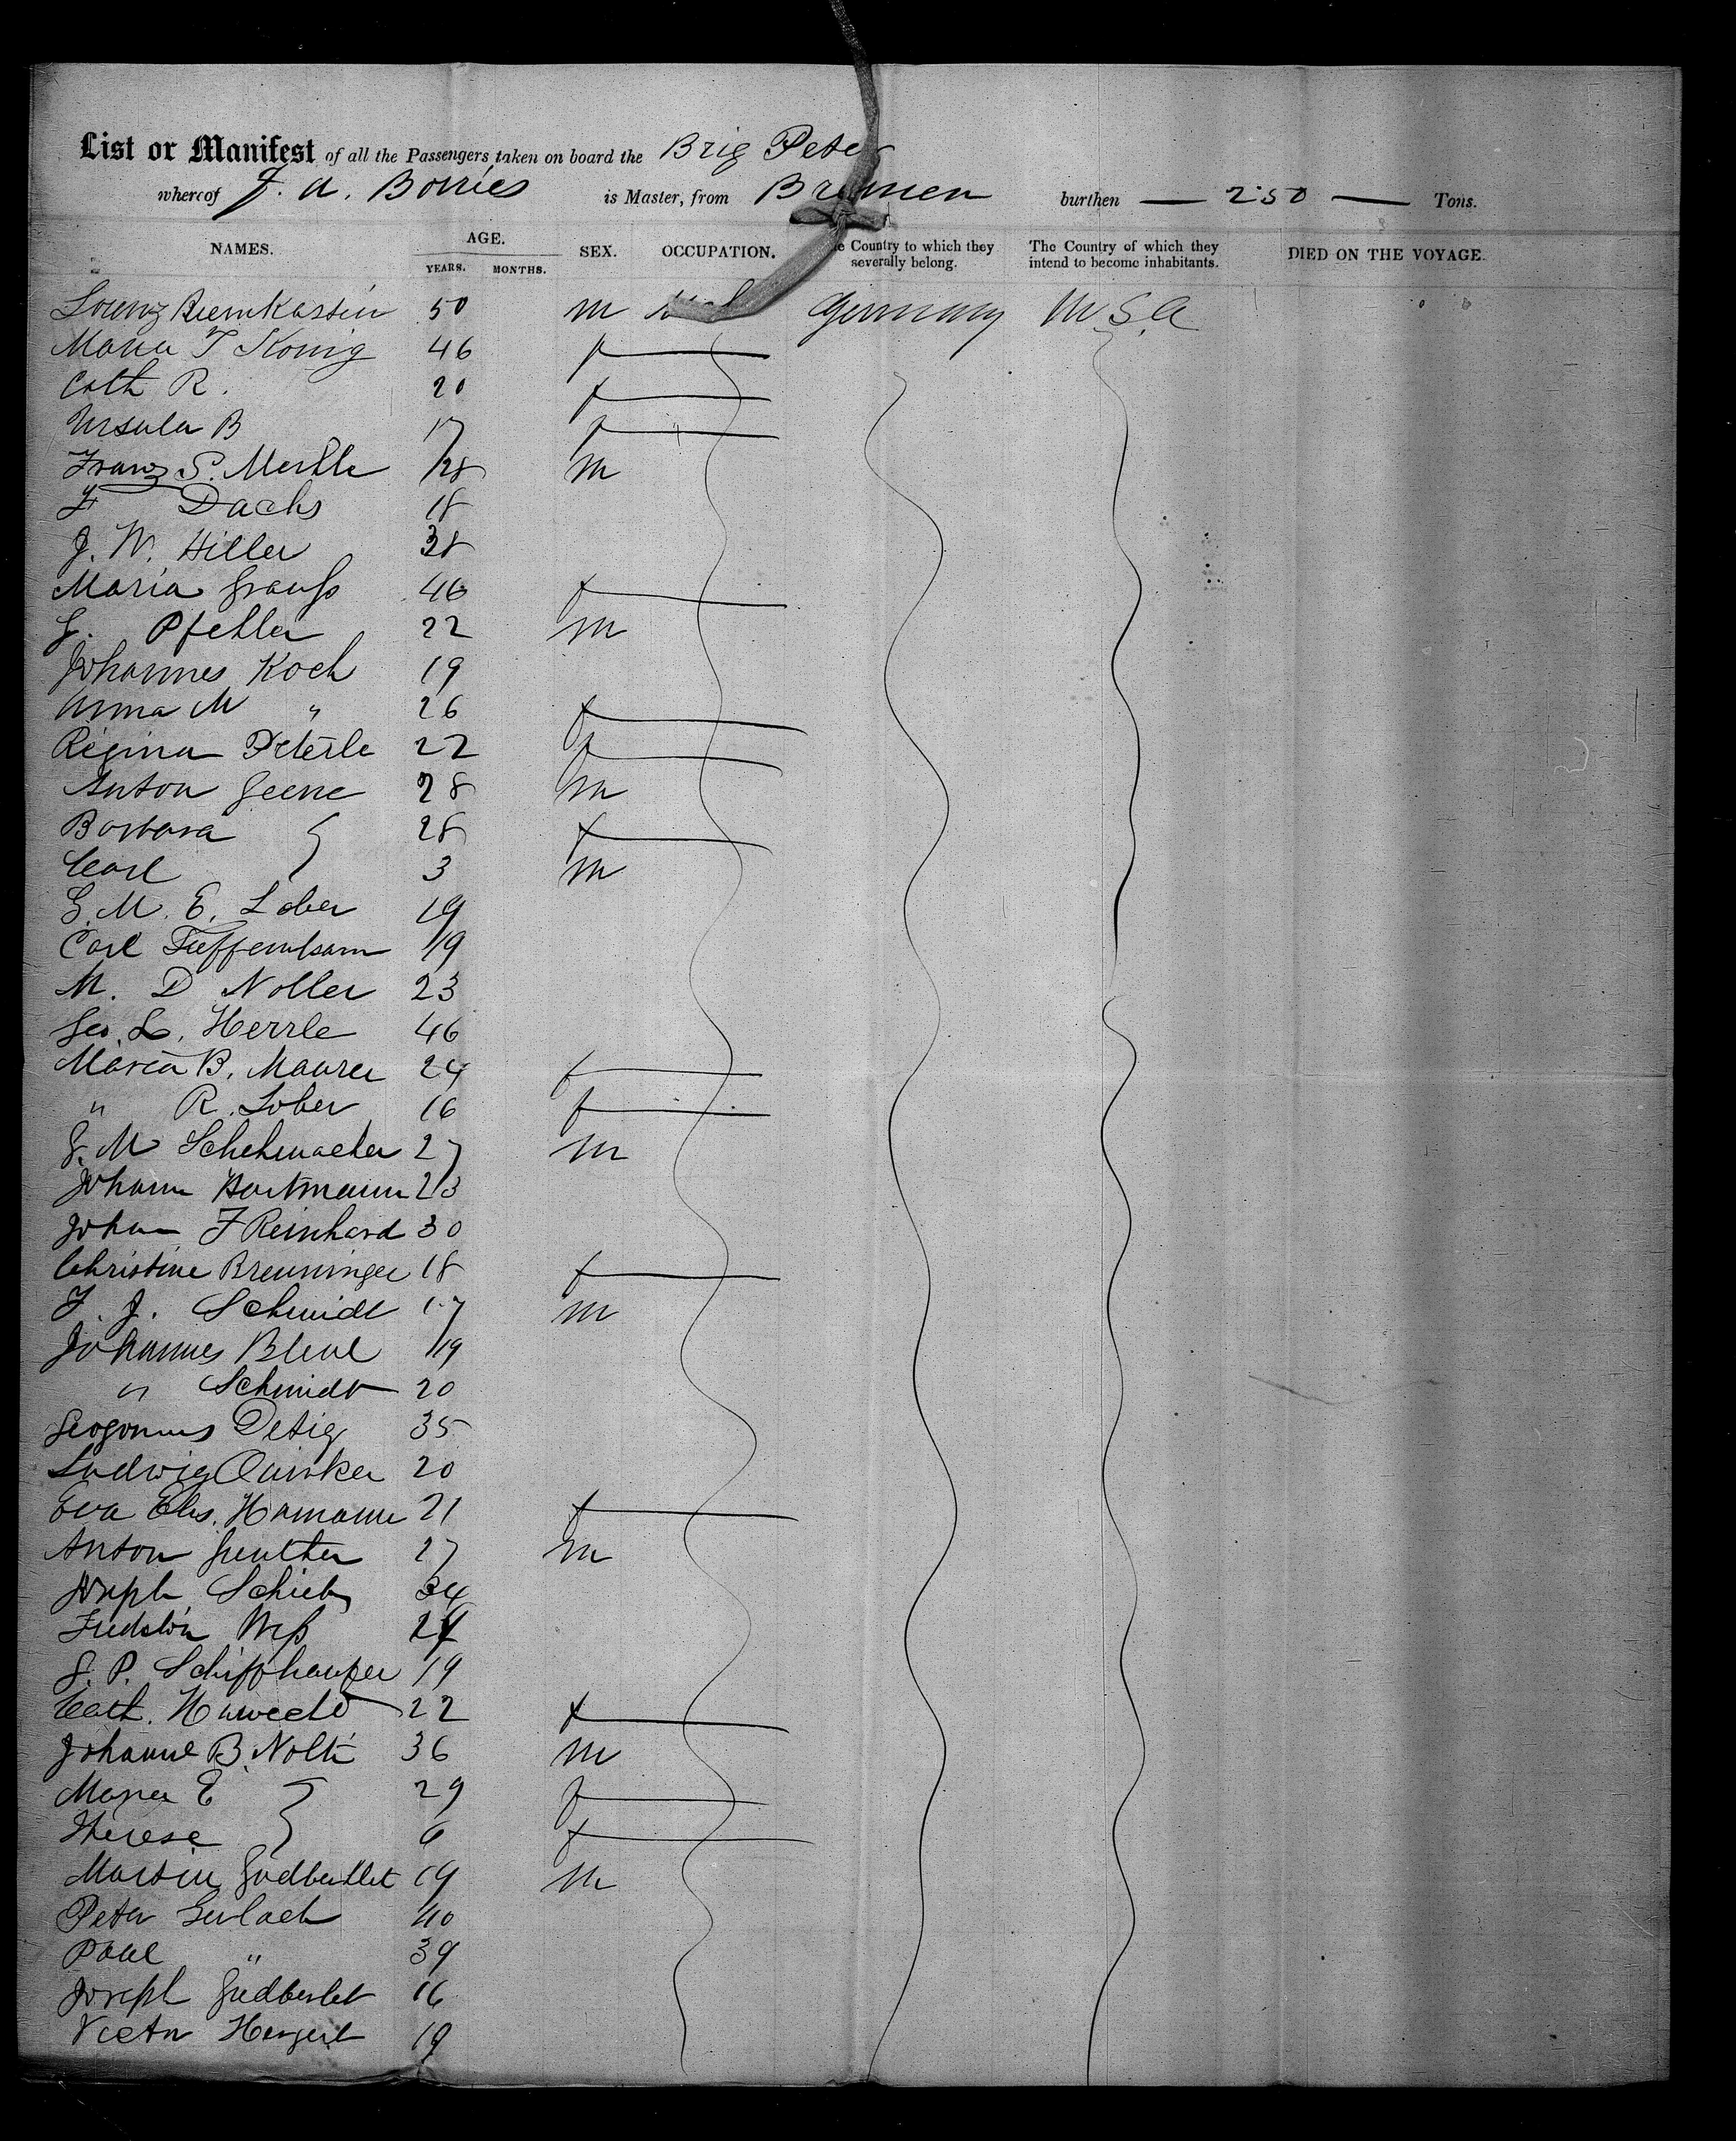 List or Manifest of all the Passengers taken on board the Brig Peter
whereof J. A. Borries is Master, from Bremen burthen — 250 — Tons.
NAMES. AGE. YEARS. MONTHS. SEX. OCCUPATION. Country to which they severally belong. The Country of which they intend to become inhabitants. DIED ON THE VOYAGE.
Lorenz 50 m Germany U.S.A
Maria T Konig 46 f
Cath R. 20 f
Ursula B 17 f
Franz S. 28 m
F Dachs 18
J. W. Hiller 38
Maria 46 f
G. Pfehler 22 m
Johannes Koch 19
Anna M " 26 f
Regina Peterle 22 f
Anton Geene 28 m
Barbara 28 f
Carl 3 m
G. M. E. Lober 19
Carl 19
M. D Noller 23
Geo. L. Herrle 46
Maria B. Maurer 24 f
" R. Lober 16 f
G. M 27 m
Johann Hartmann 23
Johan F Reinhard 30
Christine Breuninger 18 f
F. J. Schmidt 17 m
Johannes 19
" Schmidt 20
Detig 35
Ludwig 20
Eva Elis. Hamann 21 f
Anton Gunther 27 m
Joseph 34
24
G. P. 19
Cath. 22 f
B. Nolte 36 m
Maria E 29 f
Therese 6 f
Martin 19 m
Peter Gerlach 40
Paul " 39
Joseph 16
Victor 19